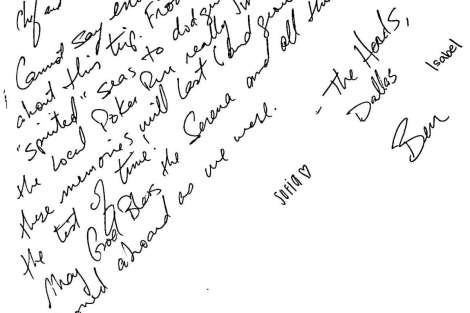 Chef and
Cannot say en
about this trip. From
"spirited" seas to dodgin
the local Poker Run really
these memories will last (and
the test of time!
May God Bless the Serena and all th
oned aboard as we were.
- The Heads,
Dallas
Isabel
Ben
Sofia♡